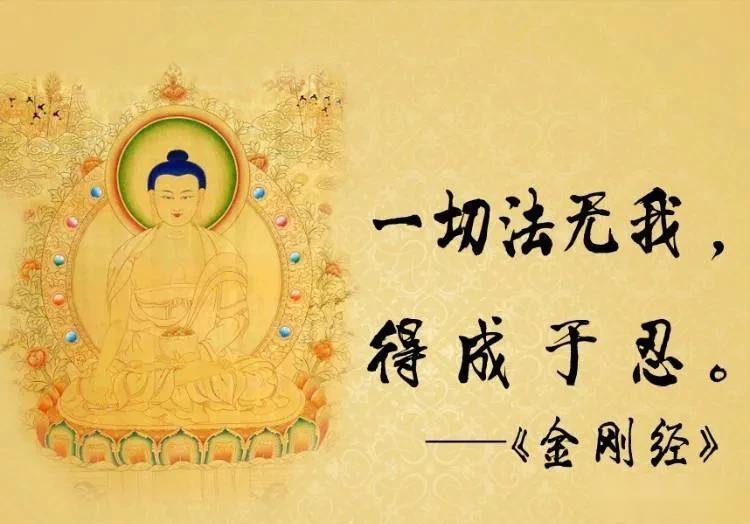 一切法无我，
得成于忍。
——《金刚经》